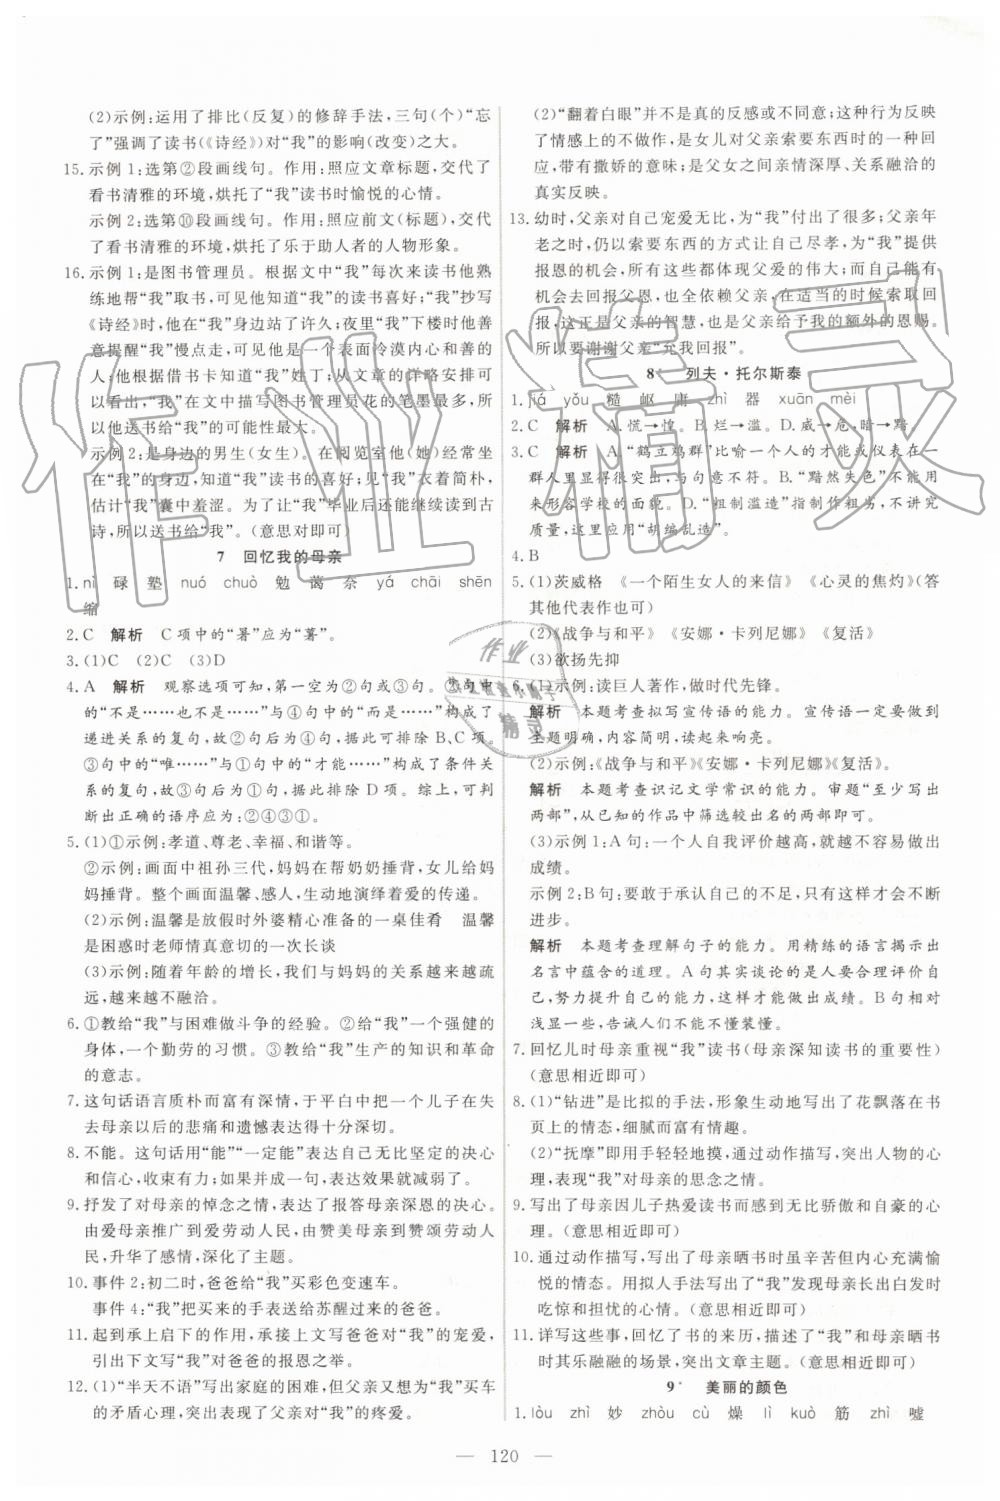 (2)示例:运用了排比(反复)的修辞手法,三句(个)“忘
了”强调了读书(《诗经》)对“我”的影响(改变)之大。
15. 示例 1:选第②段画线句。作用:照应文章标题,交代了
看书清雅的环境,烘托了“我”读书时愉悦的心情。
示例 2:选第⑩段画线句。作用:照应前文(标题),交代
了看书清雅的环境,烘托了乐于助人者的人物形象。
16. 示例 1:是图书管理员。根据文中“我”每次来读书他熟
练地帮“我”取书,可见他知道“我”的读书喜好;“我”抄写
《诗经》时,他在“我”身边站了许久;夜里“我”下楼时他善
意提醒“我”慢点走,可见他是一个表面冷漠内心和善的
人;他根据借书卡知道“我”姓丁;从文章的详略安排可
以看出,“我”在文中描写图书管理员花的笔墨最多,所
以他送书给“我”的可能性最大。
示例 2:是身边的男生(女生)。在阅览室他(她)经常坐
在“我”的身边,知道“我”的喜好;看见“我”衣着简朴,
估计“我”囊中羞涩。为了让“我”毕业后还能继续读到古
诗,所以送书给“我”。(意思对即可)
7 回忆我的母亲
1. nì 碌 塾 nuó chuò 勉 蔼 奈 yá chāi shēn
缩
2. C 解析 C 项中的“暑”应为“署”。
3. (1)C (2)C (3)D
4. A 解析 观察选项可知,第一空为②句或③句。②句中
的“不是……也不是……”与④句中的“而是……”构成了
递进关系的复句,故②句后为④句。据此可排除 B、C 项。
③句中的“唯……”与①句中的“才能……”构成了条件关
系的复句,故③句后为①句。据此排除 D 项。综上,可判
断出正确的语序应为:②④③①。
5. (1)①示例:孝道、尊老、幸福、和谐等。
②示例:画面中祖孙三代,妈妈在帮奶奶捶背,女儿给妈
妈捶背。整个画面温馨、感人,生动地演绎着爱的传递。
(2)示例:温馨是放假时外婆精心准备的一桌佳肴 温馨
是困惑时老师情真意切的一次长谈
(3)示例:随着年龄的增长,我们与妈妈的关系越来越疏
远,越来越不融洽。
6. ①教给“我”与困难做斗争的经验。②给“我”一个强健的
身体,一个勤劳的习惯。③教给“我”生产的知识和革命
的意志。
7. 这句话语言质朴而富有深情,于平白中把一个儿子在失
去母亲以后的悲痛和遗憾表达得十分深切。
8. 不能。这句话用“能”“一定能”表达自己无比坚定的决心
和信念,如果去掉并成一句,表达效果就减弱了。
9. 抒发了对母亲的悼念之情,表达了报答母亲深恩的决心。
由爱母亲推广到爱劳动人民,由赞美母亲到赞颂劳动人
民,升华了感情,深化了主题。
10. 事件 2:初二时,爸爸给“我”买彩色变速车。
事件 4:“我”把买来的手表送给苏醒过来的爸爸。
11. 起到承上启下的作用,承接上文写爸爸对“我”的宠爱,
引出下文写“我”对爸爸的报恩之举。
12. (1)“半天不语”写出家庭的困难,但父亲又想为“我”买车
的矛盾心理,突出表现了父亲对“我”的疼爱。
(2)“翻着白眼”并不是真的反感或不同意;这种行为反映
了情感上的不做作,是女儿对父亲索要东西时的一种回
应,带有撒娇的意味;是父女之间亲情深厚、关系融洽的
真实反映。
13. 幼时,父亲对自己宠爱无比,为“我”付出了很多;父亲年
老之时,仍以索要东西的方式让自己尽孝,为“我”提供
报恩的机会,所有这些都体现父爱的伟大;而自己能够有
机会去回报父恩,也全依赖父亲,在适当的时候索取回
报,这正是父亲的智慧,也是父亲给予我的额外的恩赐。
所以要谢谢父亲“允我回报”。
8* 列夫·托尔斯泰
1. jiá yǒu 糙 岖 庸 zhì 器 xuān mèi
2. C 解析 A. 慌→惶。B. 烂→滥。D. 威→危,暗→黯。
3. C 解析 A.“鹤立鸡群”比喻一个人的才能或仪表在一
群人里显得很突出,与句意不符。B.“黯然失色”不能用
来形容学校的面貌。D.“粗制滥造”指制作粗劣,不讲究
质量,这里应用“胡编乱造”。
4. B
5. (1)茨威格 《一个陌生女人的来信》 《心灵的焦灼》(答
其他代表作也可以)
(2)《战争与和平》 《安娜·卡列尼娜》 《复活》
(3)欲扬先抑
6. (1)示例:读巨人著作,做时代先锋。
解析 本题考查拟写宣传语的能力。宣传语一定要做到
主题明确,内容简明,读起来响亮。
(2)示例:《战争与和平》《安娜·卡列尼娜》《复活》。
解析 本题考查识记文学常识的能力。审题“至少写出
两部”,从已知的作品中筛选较出名的两部即可。
(3)示例 1:A 句:一个人自我评价越高,就越不容易做出
成绩。
示例 2:B 句:要敢于承认自己的不足,只有这样才会不断
进步。
解析 本题考查理解句子的能力。用精练的语言揭示出
名言中蕴含的道理。A 句其实谈论的是人要合理评价自
己,努力提高自己的能力,这样才能做出成绩。B 句相对
浅显一些,告诫人们不能不懂装懂。
7. 回忆儿时母亲重视“我”读书(母亲深知读书的重要性)
(意思相近即可)
8. (1)“钻进”是比拟的手法,形象生动地写出了花飘落在书
页上的情态,细腻而富有情趣。
(2)“抚摩”即用手轻轻地摸,通过动作描写,写出了动作
之轻,表现“我”对母亲的思念之情。
9. 写出了母亲因儿子热爱读书而感到无比骄傲和自豪的心
理。(意思相近即可)
10. 通过动作描写,写出了母亲晒书时虽辛苦但内心充满愉
悦的情态。用拟人手法写出了“我”发现母亲长出白发时
吃惊和担忧的心情。(意思相近即可)
11. 详写这些事,回忆了书的来历,描述了“我”和母亲晒书
时其乐融融的场景,突出文章主题。(意思相近即可)
9* 美丽的颜色
1. lòu zhì 妙 zhòu cù 燥 lì kuò 筋 zhì 嘘
— 120 —
作业精灵
作业
精灵